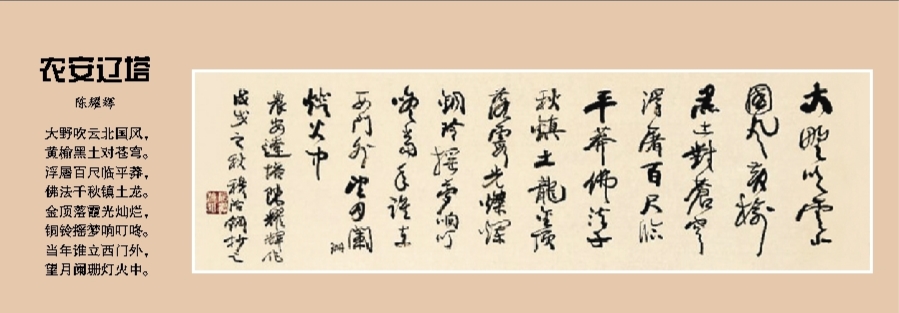 农安辽塔
陈耀辉
大野吹云北国风，
黄榆黑土对苍穹。
浮屠百尺临平莽，
佛法千秋镇土龙。
金顶落霞光灿烂，
铜铃摇梦响叮咚。
当年谁立西门外，
望月阑珊灯火中。
大野吹云北
国风黄榆
黑土對蒼穹
浮屠百尺临
平莽佛法千
秋镇土龙金顶
落霞光燦爛
铜铃摇梦响叮
咚当年谁立
西门外望月阑珊
灯火中
農安遼塔陈耀輝作
戊戌之秋